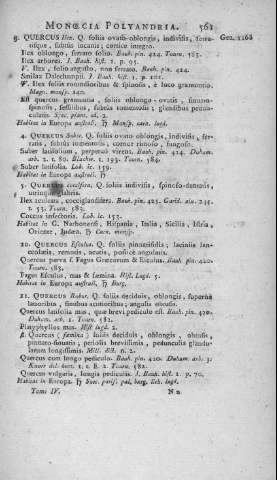 MONŒCIA POLYANDRIA. 561
9. QUERCUS Ilex. Q. foliis ovato-oblongis, indivisis, serra- Gen. 1166
tisque, subtus incanis; cortice integro.
Ilex oblongo, serrato folio. Bauh. pin. 424. Tourn. 583.
Ilex arborea. J. Bauh. hist. 1. p. 95.
V. Ilex, folio angusto, non serrato. Bauh. pin. 424.
Smilax Dalechampii. J. Bauh. hist. 1. p. 101.
V. Ilex foliis rotundioribus & spinosis, e luco gramuntio.
Magn. monsp. 140.
Est quercus gramuntia, foliis oblongo-ovatis, sinuato-
spinosis, sessilibus, subtus tomentosis; glandibus pedunculatis.
Spec. plant. id. 2.
Habitat in Europa australi. ♄ Monsp. circà Ingd.
4. QUERCUS Suber. Q. foliis ovato oblongis, indivisis, ser-
ratis, subtus tomentosis, cortice rimoso, fungoso.
Suber latifolium, perpetuo virens. Bauh. pin. 424. Duham.
arb. 2. t. 80. Blackw. t. 193. Tourn. 584.
Suber latifolium. Lob. ic. 159.
Habitat in Europa australi ♄
5. QUERCUS coccifera. Q. foliis indivisis, spinoso-dentatis,
utrinque glabris.
Ilex aculeata, cocciglandifera. Bauh. pin. 425. Garid. aix. 245.
t. 53. Tourn. 583.
Coccus infectoria. Lob. ic. 153.
Habitat in G. Narbonensi, Hispania, Italia, Sicilia, Istria,
Oriente,
20. QUERCUS Esculus. Q. foliis pinnatifidis, laciniis lan-
ceolatis, remotis, acutis, posticè angulatis.
Quercus parva f. Fagus Græcorum & Esculus. Bauh. pin. 420.
Tourn. 583.
Fagus Esculus, mas & fœmina. Hist. Lugd. 5.
Habitat in Europa australi, ♄ Burg.
21. QUERCUS Robur. Q. foliis deciduis, oblongis, supernè
latioribus, sinubus acutioribus; angulis obtusis.
Quercus latifolia mas, quæ brevi pediculo est. Bauh. pin. 420.
Duham. arb. 1. Tourn. 582.
Platyphyllos mas. Hist lugd. 2.
β. Quercus (fœmina) foliis deciduis, oblongis, obtusis,
pinnato-sinuatis, petiolis brevissimis, pedunculis glandu-
larum longissimis. Mill. dict. n. 2.
Quercus cum longo pediculo. Bauh. pin. 420. Duham. arb. 3.
Tourn. 582.
Quercus vulgaris, longis pediculis. J. Bauh. hist. 1 p. 70.
Habitat in Europa. ♄ Suec. paris. pal, burg. lith. Ingd.
Tome IV. N n